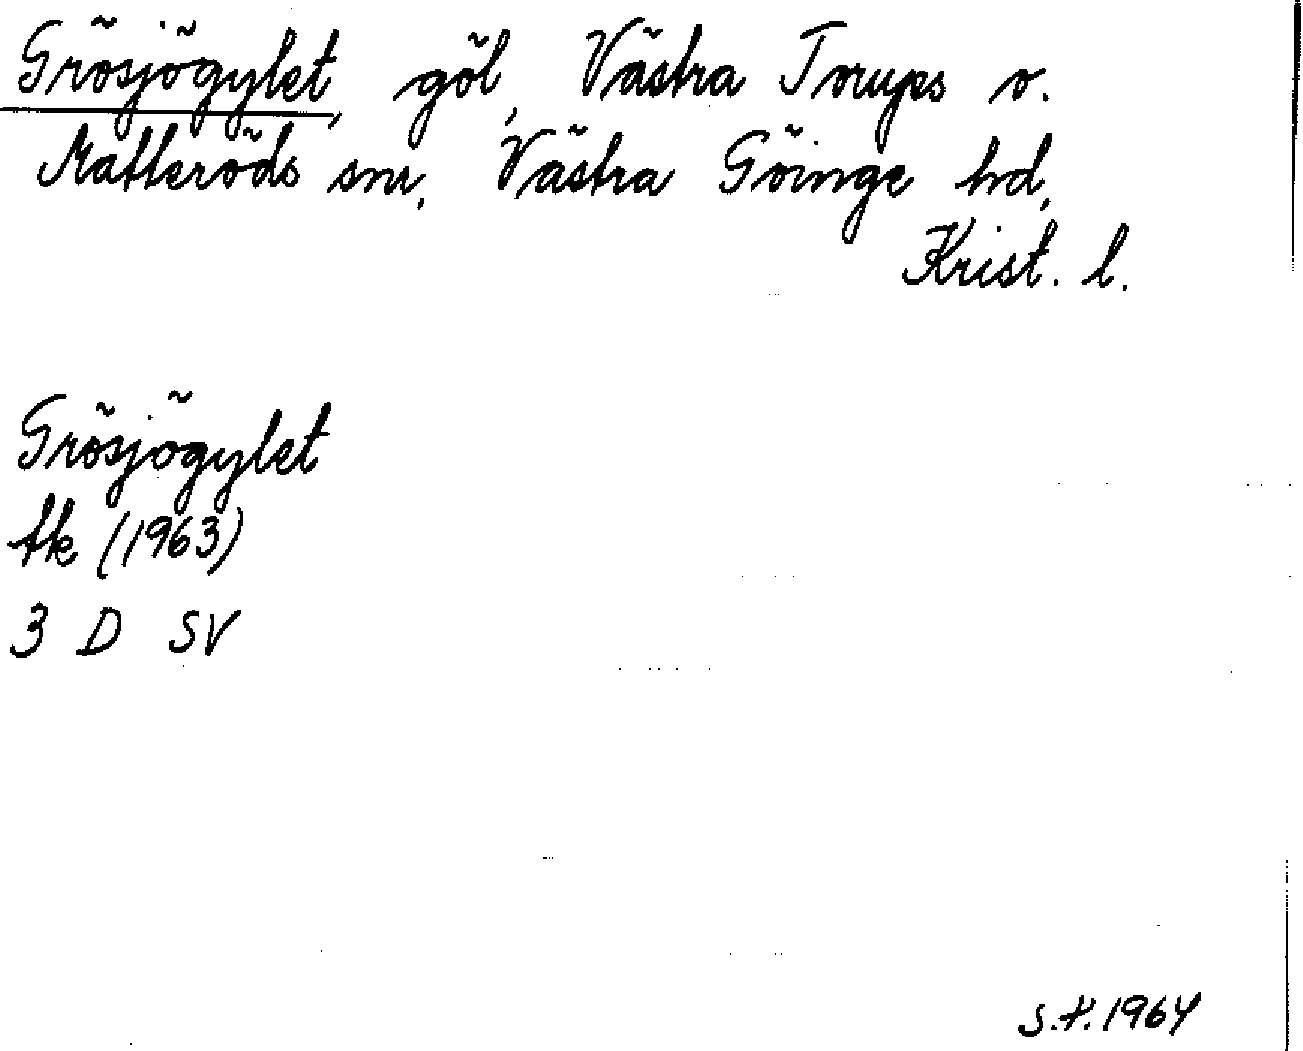 Grösjögylet, göl, Västra Torups o.
Matteröds snr, Västra Göinge hd,
Krist. l.
Grösjögylet
tk (1963)
3 D SV
S.H. 1964